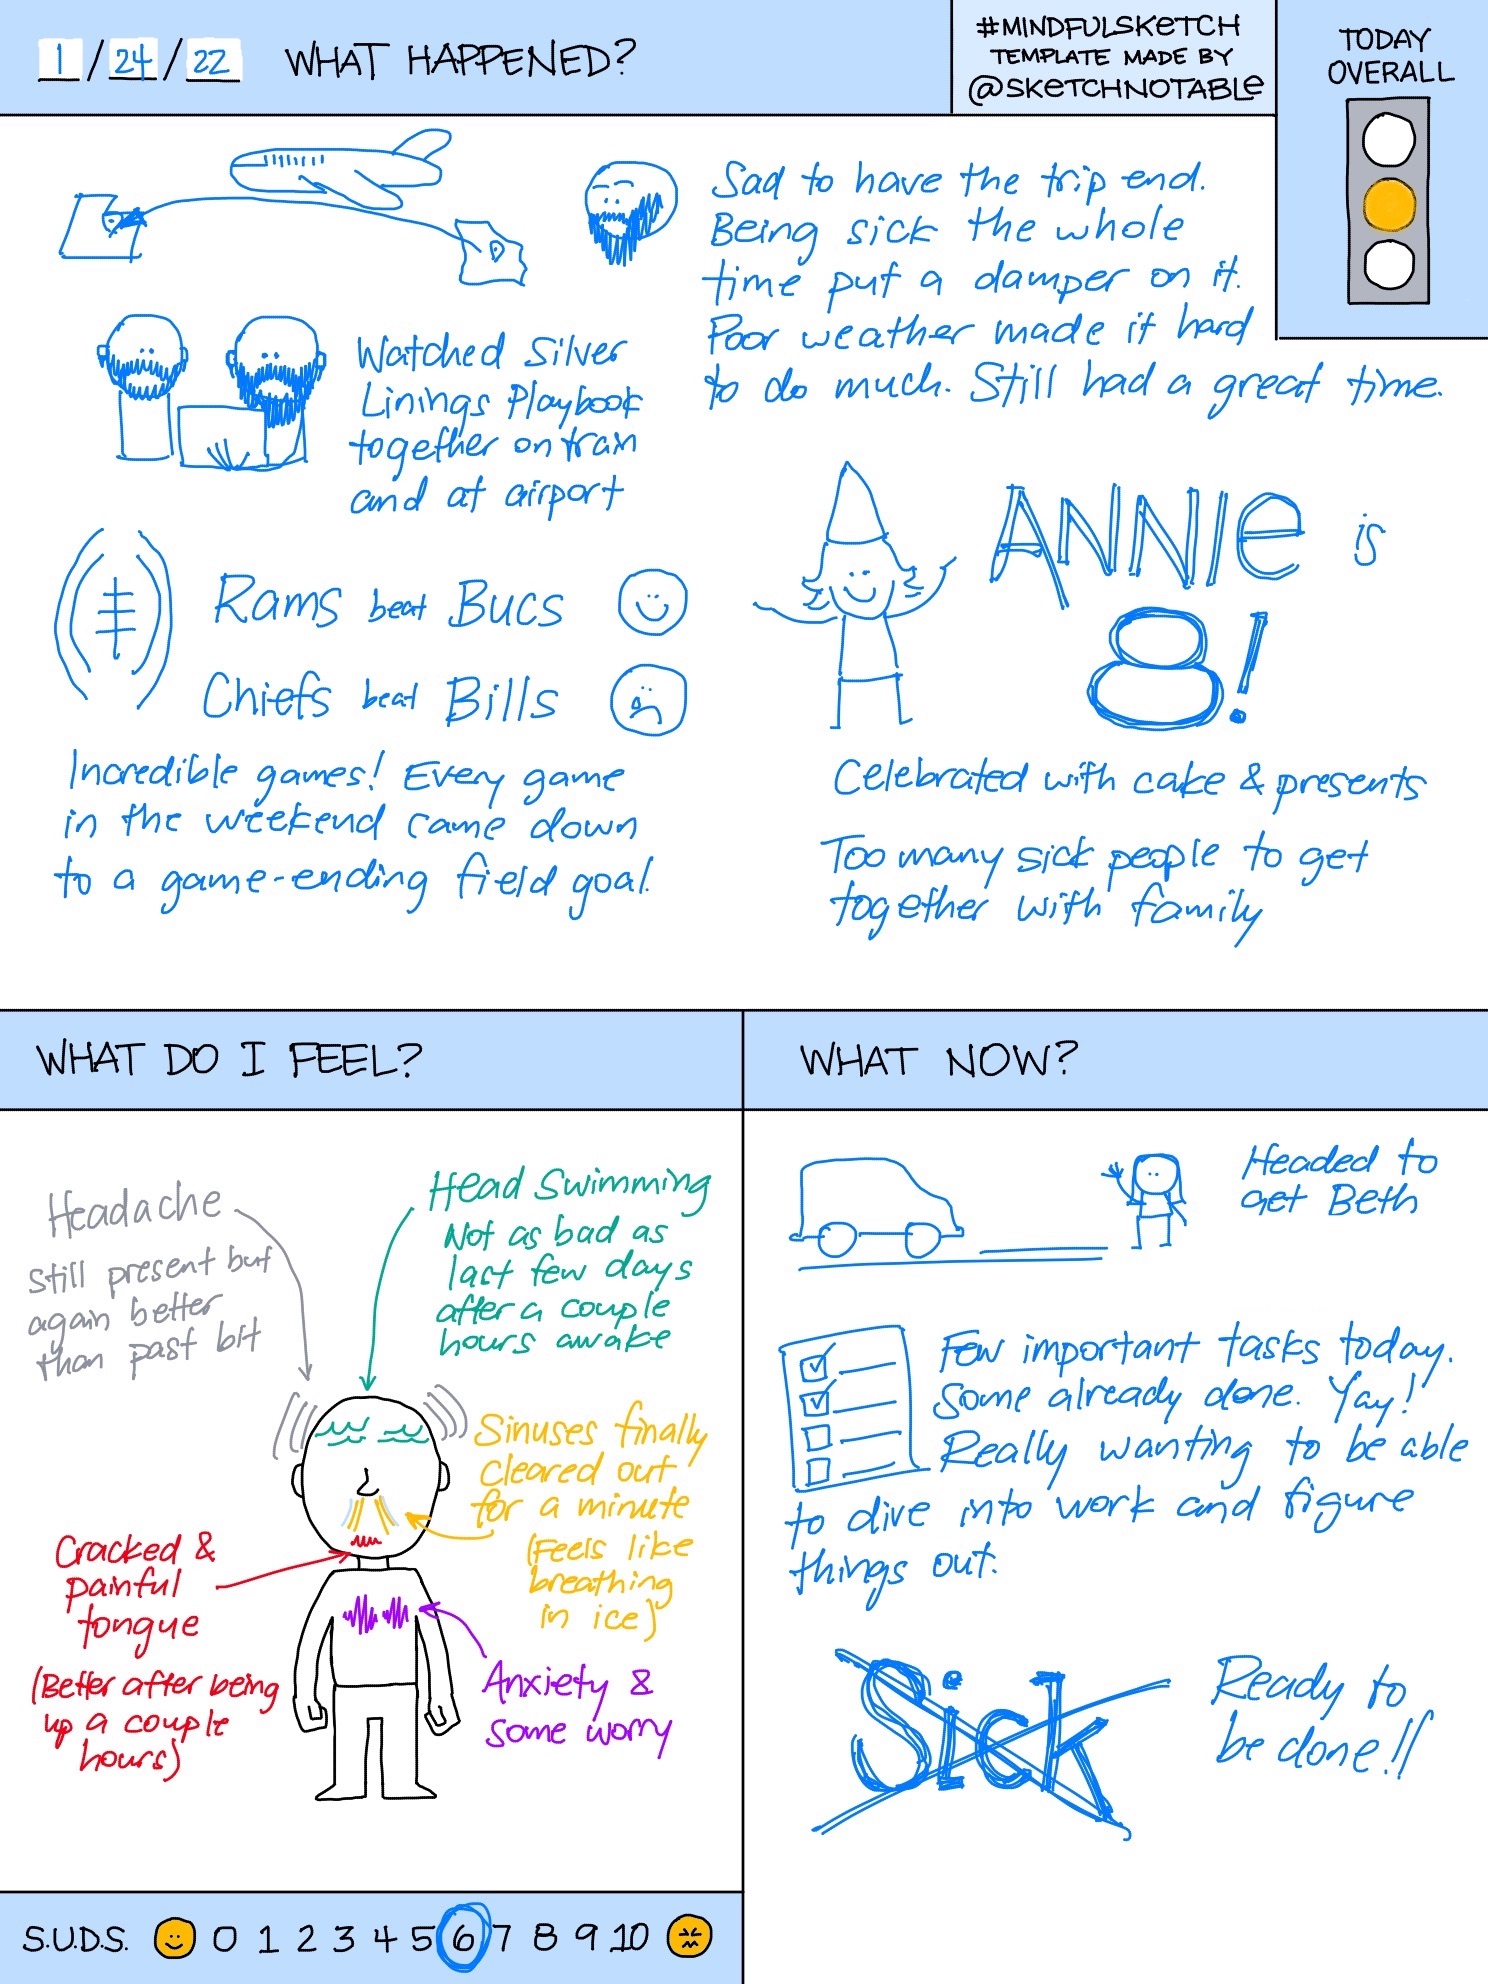 1/24/22 WHAT HAPPENED?
#MINDFULSKETCH
TEMPLATE MADE BY
@SKETCHNOTABLE
TODAY
OVERALL
Sad to have the trip end.
Being sick the whole
time put a damper on it.
Poor weather made it hard
to do much. Still had a great time.
Watched Silver
Linings Playbook
together on train
and at airport
Rams beat Bucs
Chiefs beat Bills
Incredible games! Every game
in the weekend came down
to a game-ending field goal.
ANNIE is
8!
Celebrated with cake & presents
Too many sick people to get
together with family
WHAT DO I FEEL?
Headache
Still present but
again better
than past bit
Head Swimming
Not as bad as
last few days
after a couple
hours awake
Sinuses finally
cleared out
for a minute
(Feels like
breathing
in ice)
Cracked &
painful
tongue
(Better after being
up a couple
hours)
Anxiety &
some worry
S.U.D.S. 0 1 2 3 4 5 6 7 8 9 10
WHAT NOW?
Headed to
get Beth
Few important tasks today.
Some already done. Yay!
Really wanting to be able
to dive into work and figure
things out.
Sick
Ready to
be done!!